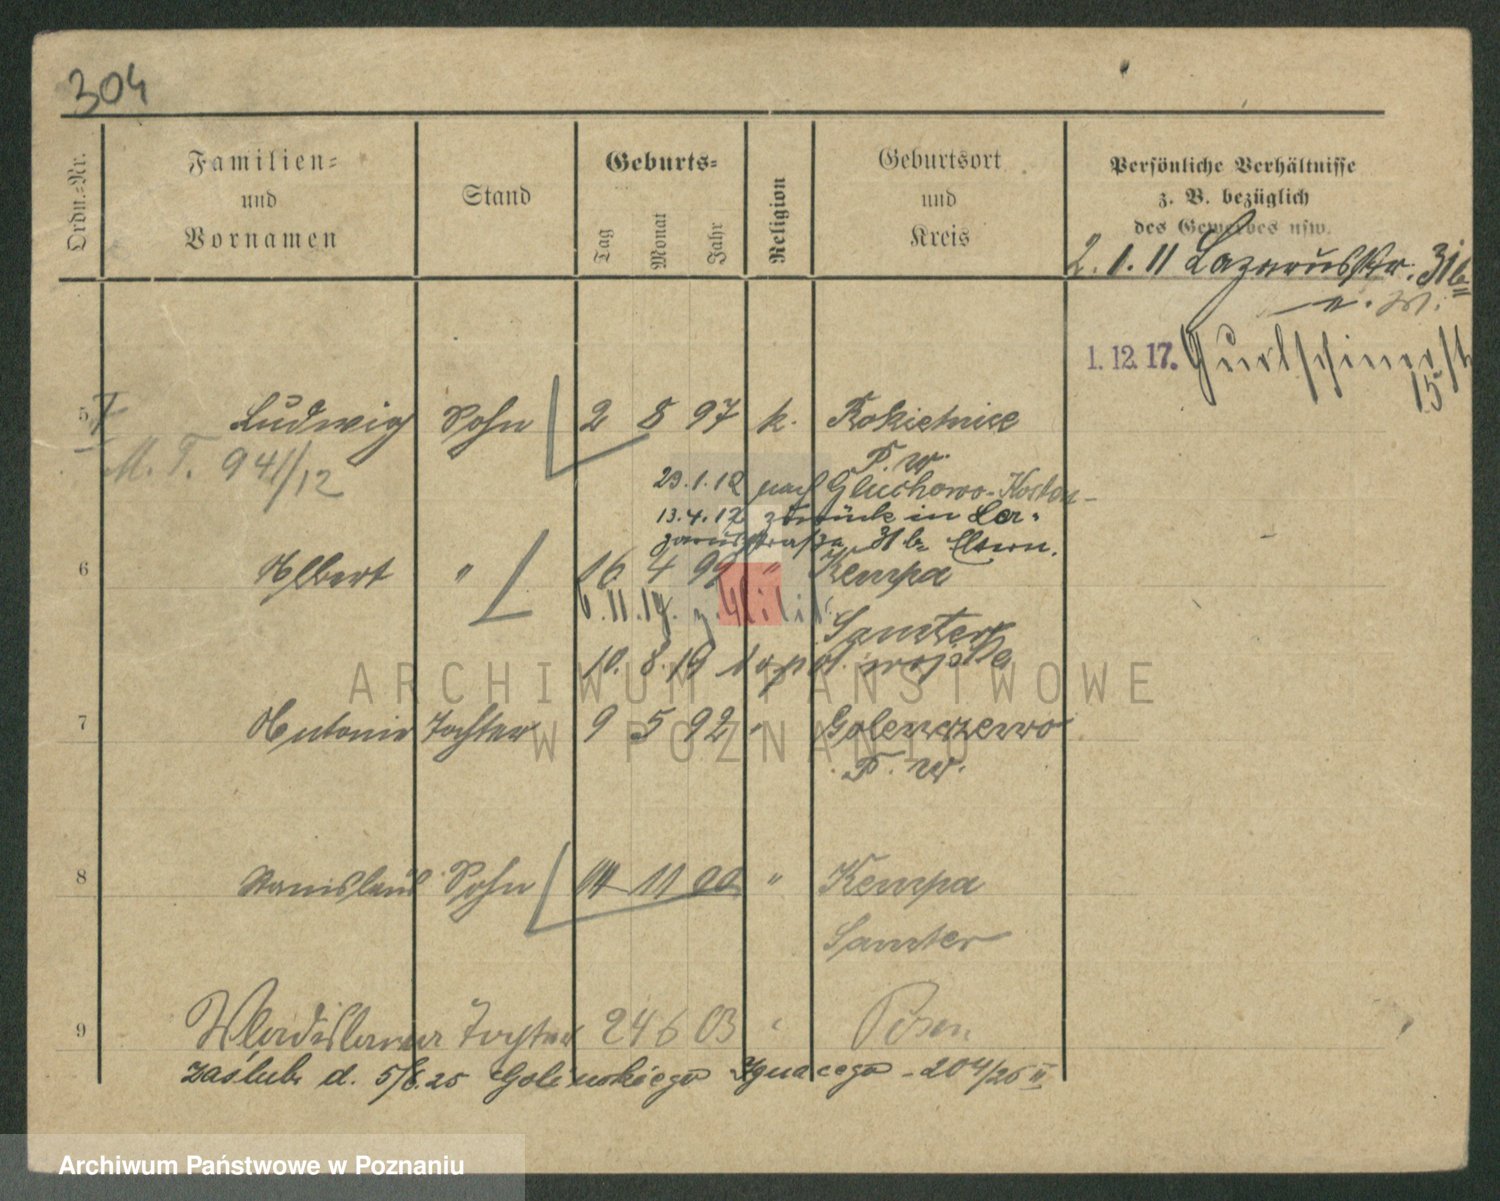 304
Ordn.-Nr.
Familien-
und
Vornamen
Stand
Geburts-
Tag
Monat
Jahr
Religion
Geburtsort
und
Kreis
Persönliche Verhältnisse
z. B. bezüglich
des Gewerbes usw.
2. 1. 11 Lazarusstr. 31b
1. 12. 17. Gurtschinerst
15
5 Ludwig Sohn 2 8 97 k. Rokietnice
P. W.
M. T. 941/12
23. 1. 12 nach Gluchowo-Kosten
13. 4. 12 zurück in La-
zarusstraße 31b Eltern.
6 Albert " 16 4 99 " Kempa
Samter
10. 8. 19 wojska
7 Antonie Tochter 9 5 92 " Golenczewo
P. W.
8 Stanislaus Sohn 14 11 00 " Kempa
Samter
9 Wladislawa Tochter 24 6 03 " Posen
zaślub. d. 5/8.25 Golinskiego Ignacego - 204/25 II
ARCHIWUM PAŃSTWOWE
W POZNANIU
Archiwum Państwowe w Poznaniu